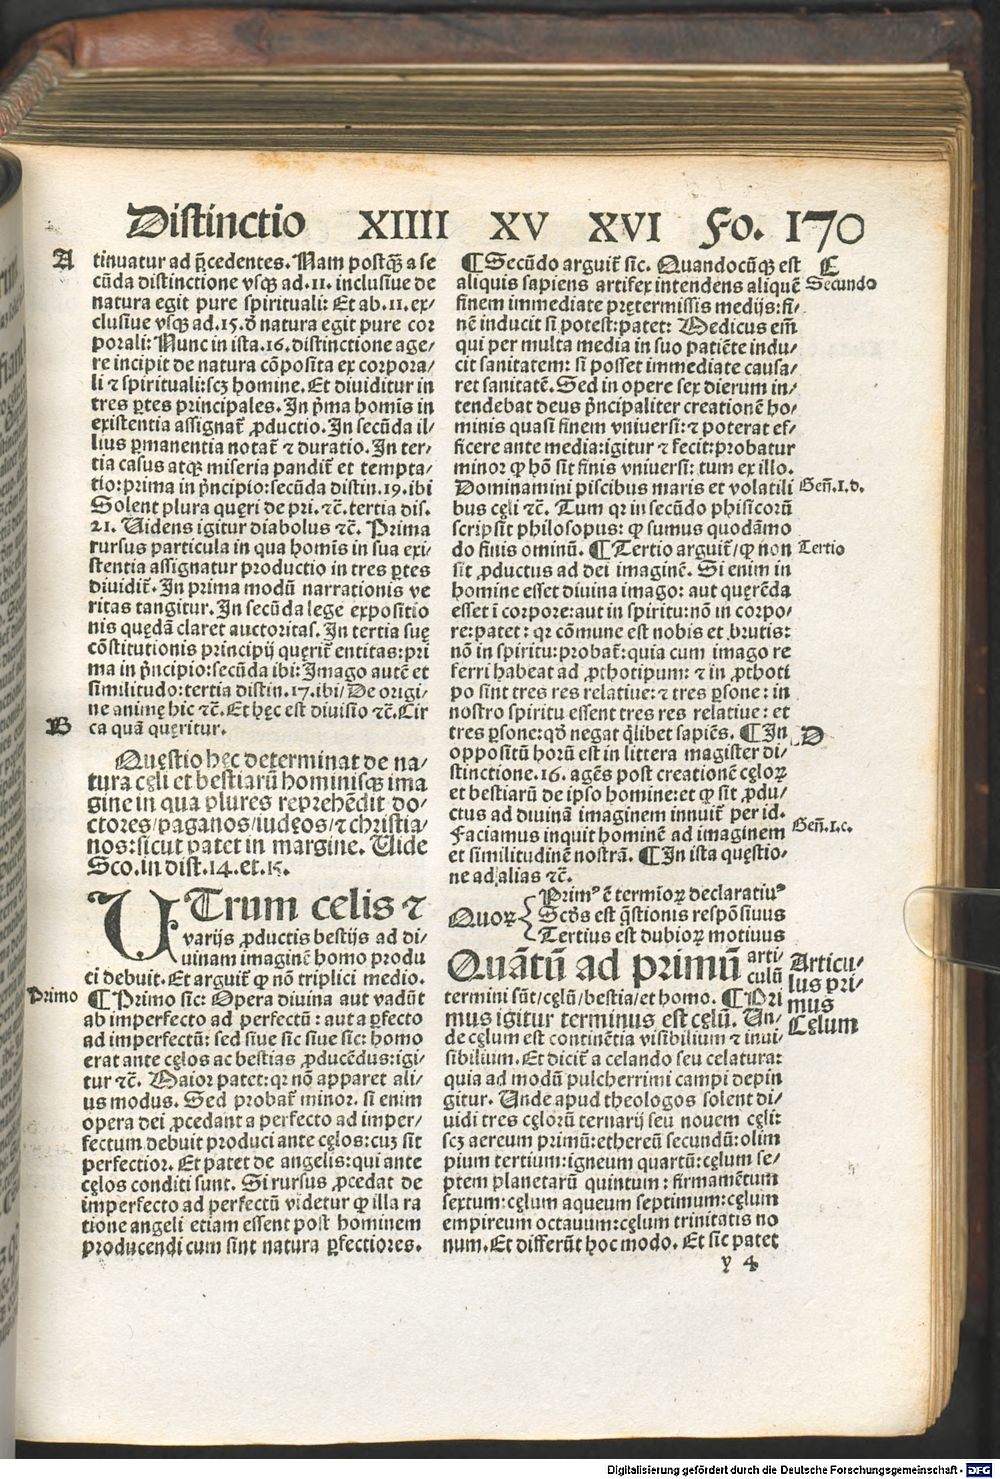 Distinctio XIIII XV XVI Fo. 170
A
tinuatur ad p̄cedentes. Nam postq̄ȝ a se
cūda distinctione vsqȝ ad .11. inclusiue de
natura egit pure spirituali: Et ab .11. ex/
clusiue vsqȝ ad .15. đ natura egit pure cor
porali: Nunc in ista .16. distinctione age/
re incipit de natura cōposita ex corpora/
li ⁊ spirituali: scȝ homine. Et diuiditur in
tres ꝑtes principales. In p̄ma homīs in
existentia assignat̄ ꝓductio. In secūda il/
lius ꝑmanentia notat̄ ⁊ duratio. In ter/
tia casus atqȝ miseria pandit̄ et tempta/
tio: prima in p̄ncipio: secūda distin. 19. ibi
Solent plura quęri de pri. ⁊č. tertia dis.
21. Uidens igitur diabolus ⁊č. Prima
rursus particula in qua homīs in sua exi/
stentia assignatur productio in tres ꝑtes
diuidit̄. In prima modū narrationis ve
ritas tangitur. In secūda lege expositio
nis quędā claret auctoritas. In tertia suę
cōstitutionis principij quęrit̄ entitas: pri
ma in p̄ncipio: secūda ibi: Imago autē et
similitudo: tertia distin. 17. ibi/ De origi/
ne animę hic ⁊č. Et hęc est diuisio ⁊č. Cir
B
ca quā quęritur.
Quęstio hęc determinat de na/
tura cęli et bestiarū hominisqȝ ima
gine in qua plures reprehēdit do/
ctores/ paganos/ iudęos/ ⁊ christia/
nos: sicut patet in margine. Uide
Sco. in dist. 14. et. 15.
UTrum celis ⁊
varijs ꝓductis bestijs ad di/
uinam imaginē homo produ
ci debuit. Et arguit̄ ꝙ nō triplici medio.
Primo
¶ Primo sic: Opera diuina aut vadūt
ab imperfecto ad perfectū: aut a ꝑfecto
ad imperfectū: sed siue sic siue sic: homo
erat ante cęlos ac bestias ꝓducēdus: igi/
tur ⁊č. Maior patet: qr nō apparet ali/
us modus. Sed probat̄ minor. si enim
opera dei ꝓcedant a perfecto ad imper/
fectum debuit produci ante cęlos: cuȝ sit
perfectior. Et patet de angelis: qui ante
cęlos conditi sunt. Si rursus ꝓcedat de
imperfecto ad perfectū videtur ꝙ illa ra
tione angeli etiam essent post hominem
producendi cum sint natura ꝑfectiores.
¶ Secūdo arguit̄ sic. Quandocūqȝ est
C
aliquis sapiens artifex intendens aliquē
Secundo
finem immediate prętermissis medijs: fi/
nē inducit si potest: patet: Medicus em̄
qui per multa media in suo patiēte indu/
cit sanitatem: si posset immediate causa/
ret sanitatē. Sed in opere sex dierum in/
tendebat deus p̄ncipaliter creationē ho/
minis quasi finem vniuersi: ⁊ poterat ef/
ficere ante media: igitur ⁊ fecit: probatur
minor ꝙ hō sit finis vniuersi: tum ex illo.
Dominamini piscibus maris et volatili
Geñ. 1. d.
bus cęli ⁊č. Tum qr in secūdo phisicorū
scripsit philosopus: ꝙ sumus quodāmo
do finis ominū. ¶ Tertio arguit̄/ ꝙ non
Tertio
sit ꝓductus ad dei imaginē. Si enim in
homine esset diuina imago: aut quęrēda
esset ī corpore: aut in spiritu: nō in corpo/
re: patet: qr cōmune est nobis et brutis:
nō in spiritu: probat̄: quia cum imago re
ferri habeat ad ꝓthotipum: ⁊ in ꝓthoti
po sint tres res relatiue: ⁊ tres ꝑsone: in
nostro spiritu essent tres res relatiue: et
tres ꝑsone: qđ negat q̄libet sapiēs. ¶ In
D
oppositū horū est in littera magister di/
stinctione. 16. agēs post creationē cęloꝝ
et bestiarū de ipso homine: et ꝙ sit ꝓdu/
ctus ad diuinā imaginem innuit̄ per id.
Faciamus inquit hominē ad imaginem
Geñ. 1. c.
et similitudinē nostrā. ¶ In ista quęstio/
ne ad alias ⁊č.
Quoꝝ
Primꝰ ē termīoꝝ declaratiuꝰ
Scđs est q̄stionis respōsiuus
Tertius est dubioꝝ motiuus
Quātū ad primū arti/
culū
Articu/
lus pri/
mus
termini sūt/ cęlū/ bestia/ et homo. ¶ Pri
mus igitur terminus est cęlū. Un/
Cęlum
de cęlum est continētia visibilium ⁊ inui/
sibilium. Et dicit̄ a celando seu celatura:
quia ad modū pulcherrimi campi depin
gitur. Unde apud theologos solent di/
uidi tres cęlorū ternarij seu nouem cęli:
scȝ aereum primū: ethereū secundū: olim
pium tertium: igneum quartū: cęlum se/
ptem planetarū quintum: firmamētum
sextum: cęlum aqueum septimum: cęlum
empireum octauum: cęlum trinitatis no
num. Et differūt hoc modo. Et sic patet
y 4
Digitalisierung gefördert durch die Deutsche Forschungsgemeinschaft - DFG